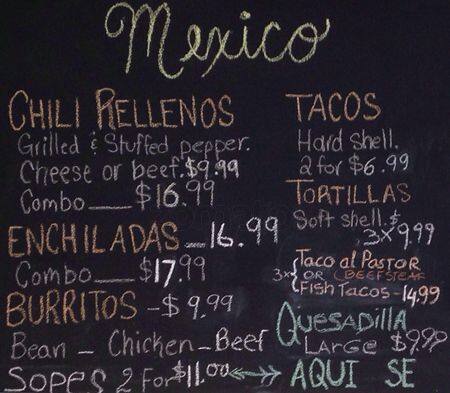 Mexico
CHILI RELLENOS
Grilled & Stuffed pepper.
Cheese or beef. $9.99
Combo__ $16.99
ENCHILADAS - 16.99
Combo__ $17.99
BURRITOS - $9.99
Bean - Chicken - Beef
SOPES 2 FOR $11.00
TACOS
Hard shell.
2 for $6.99
TORTILLAS
Soft shell. $
3x 9.99
Taco al PASTOR
3x OR (BEEFSTEAK
Fish Tacos - 14.99
QUESADILLA
LARGE $9.99
AQUI SE